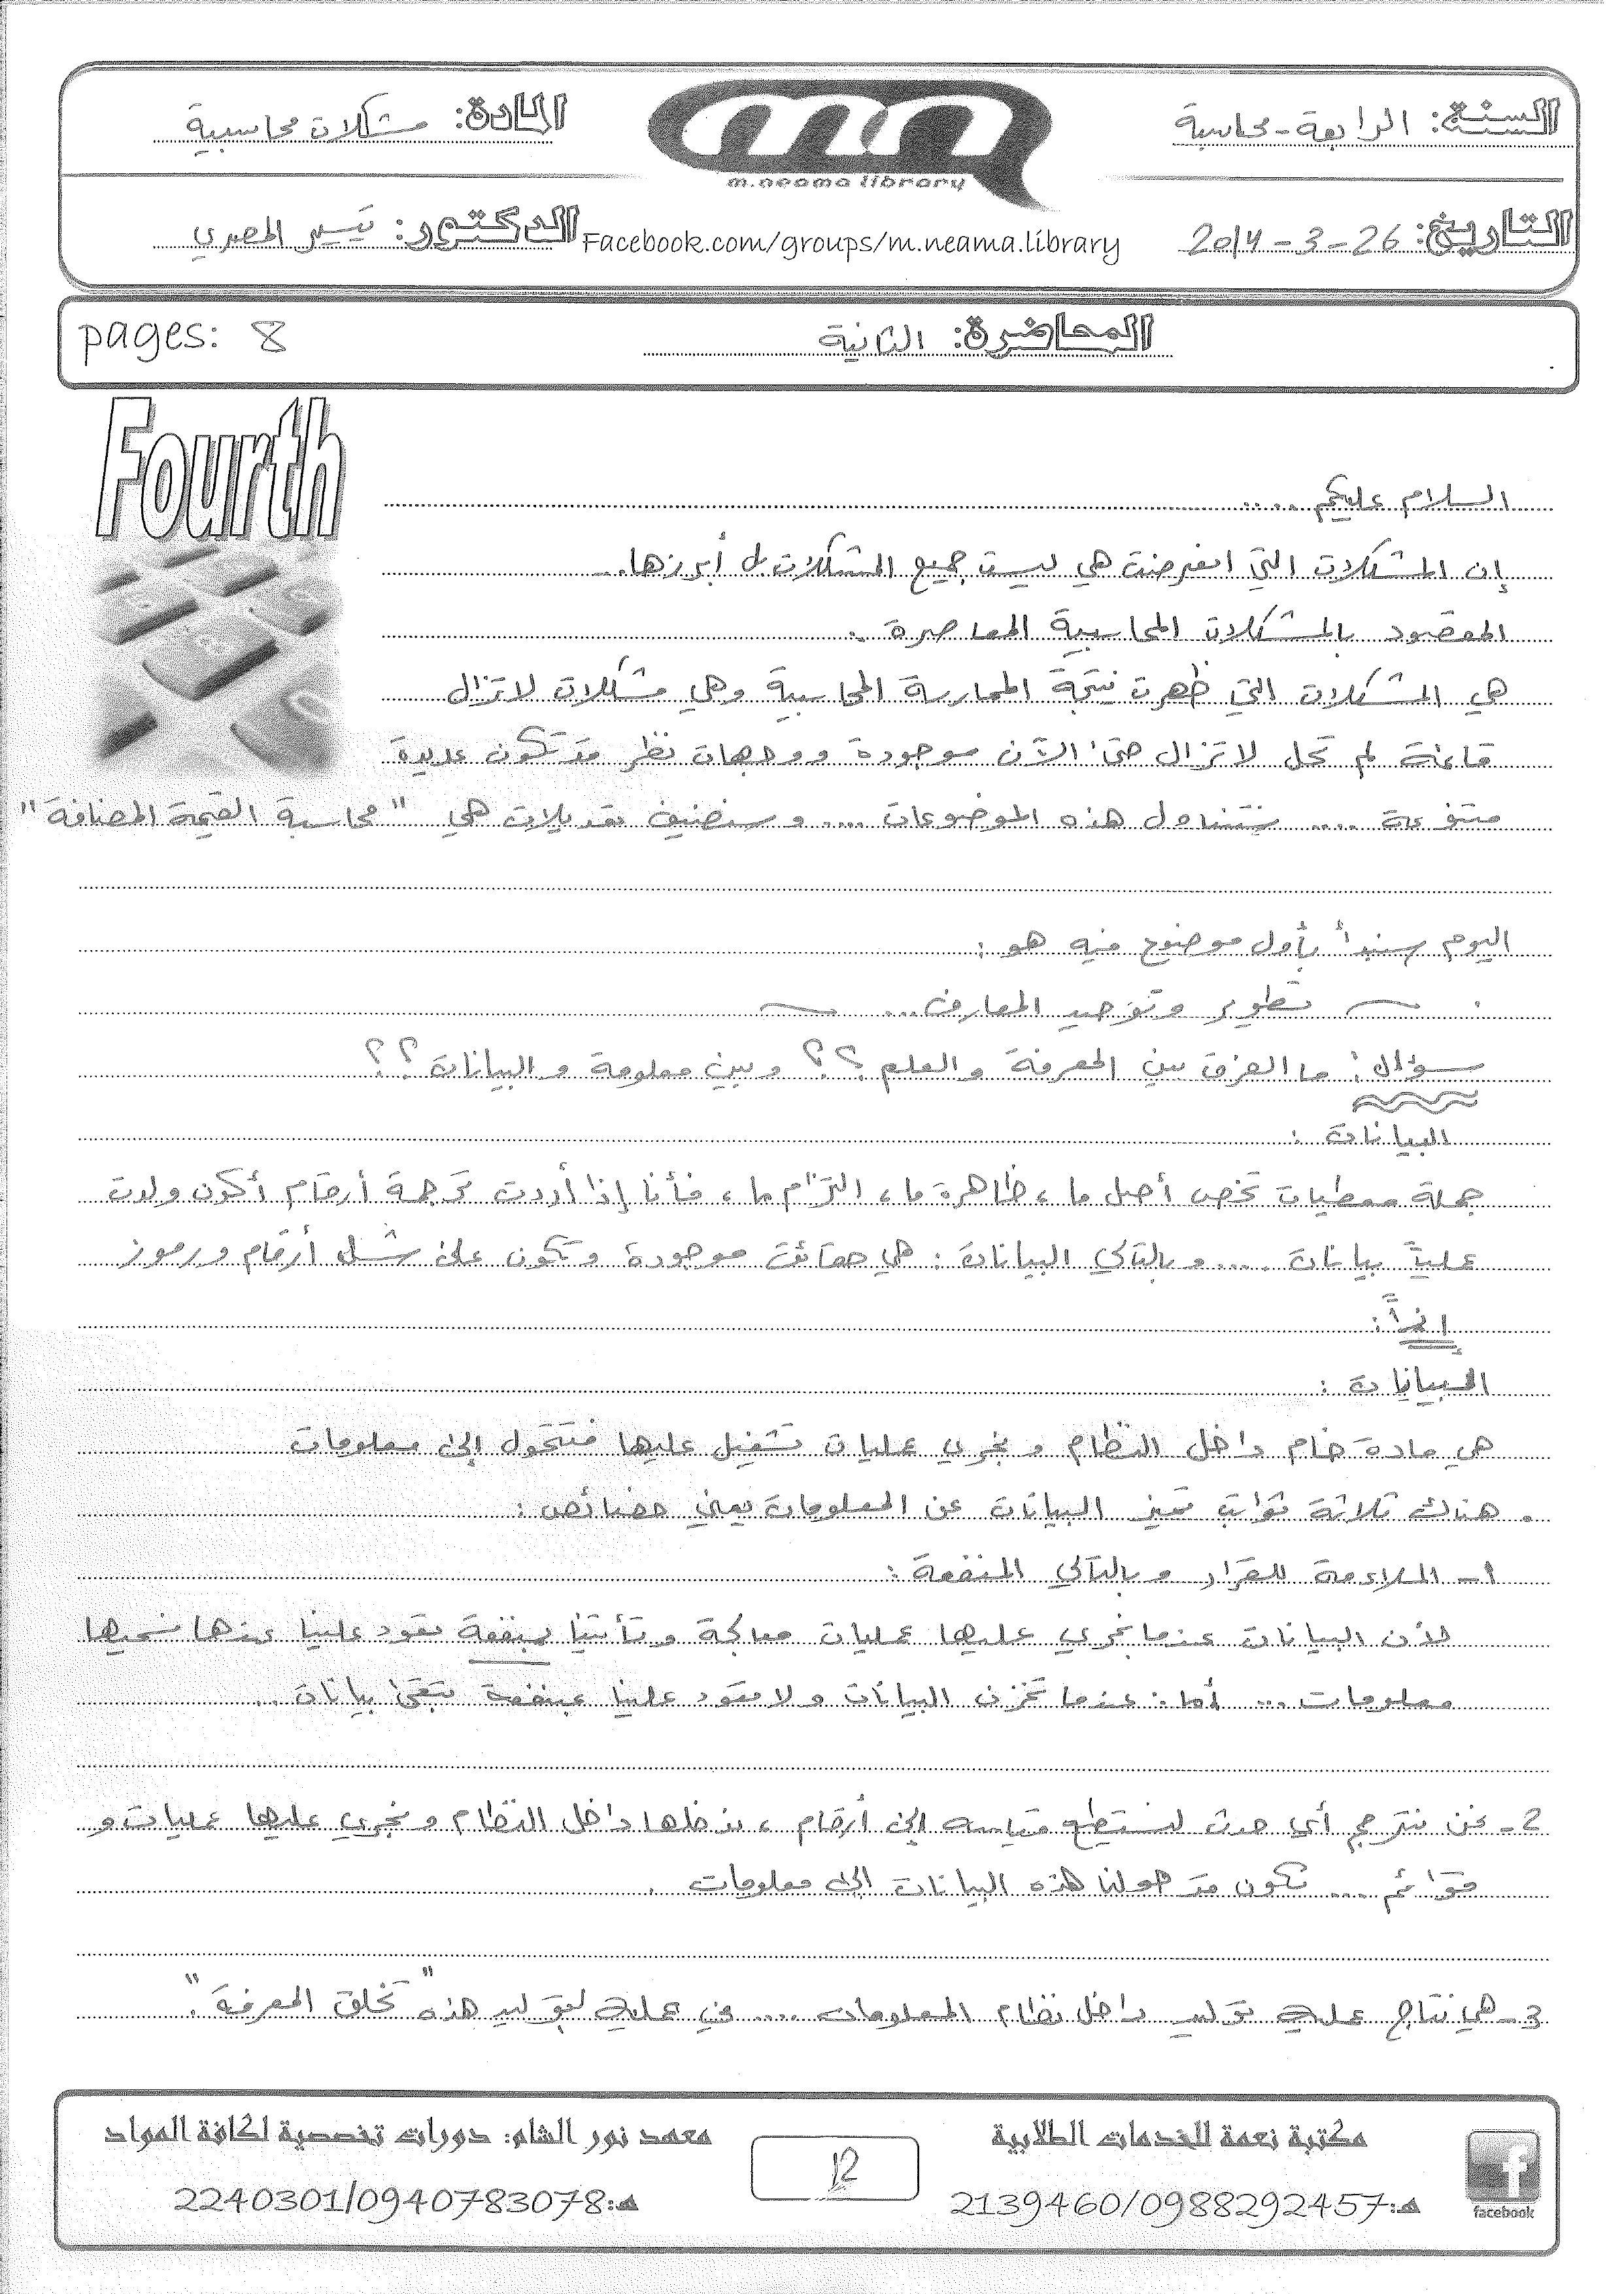 السنة: الرابعة - محاسبة
m.neama library
المادة: مشكلات محاسبية
التاريخ: 26-3-2014
Facebook.com/groups/m.neama.library
الدكتور: تيسير المصري
المحاضرة: الثانية
pages: 8
Fourth
السلام عليكم ....
إن المشكلات التي هي ليست جميع المشكلات بل أبرزها..
المقصود بالمشكلات المحاسبية المعاصرة:
هي المشكلات التي ظهرت نتيجة الممارسة المحاسبية وهي مشكلات لاتزال
قائمة لم تحل لاتزال حتى الآن موجودة ووجهات نظر قد تكون عديدة
متنوعة .... سنتناول هذه الموضوعات .... وسنضيف تعديلات هي "محاسبة القيمة المضافة"
اليوم سنبدأ بأول موضوع فيه هو:
تطوير وتوحيد المعارف...
سؤال: ما الفرق بين المعرفة والعلم؟؟ وبين معلومة والبيانات؟؟
البيانات:
جملة معطيات تخص أصل ما، ظاهرة ما، التزام ما، فأنا إذا أردت ترجمة أرقام أكون ولدت
عملياً بيانات .... وبالتالي البيانات: هي حقائق موجودة وتكون على شكل أرقام ورموز
إذاً:
البيانات:
هي مادة خام داخل النظام ونجري عمليات تشغيل عليها فتتحول إلى معلومات
. هناك ثلاثة ثوابت تميز البيانات عن المعلومات يعني خصائص:
1- الملاءمة للقرار وبالتالي المنفعة:
لأن البيانات عندما نجري عليها عمليات معالجة وتأتينا بمنفعة تعود علينا عندها نسميها
معلومات ... أما: عندما تخزن البيانات ولا تعود علينا بمنفعة تبقى بيانات ..
2- نحن نترجم أي حدث لنستطيع قياسه إلى أرقام، ندخلها داخل النظام ونجري عليها عمليات و
قوائم .... نكون قد حولنا هذه البيانات إلى معلومات .
3- هي نتاج عملية توليد داخل نظام المعلومات .... في عملية توليد هذه "تخلق المعرفة".
مكتبة نعمة للخدمات الطلابية
هـ: 2139460/0988292457
facebook
12
معهد نور الشام: دورات تخصصية لكافة المواد
هـ: 2240301/0940783078